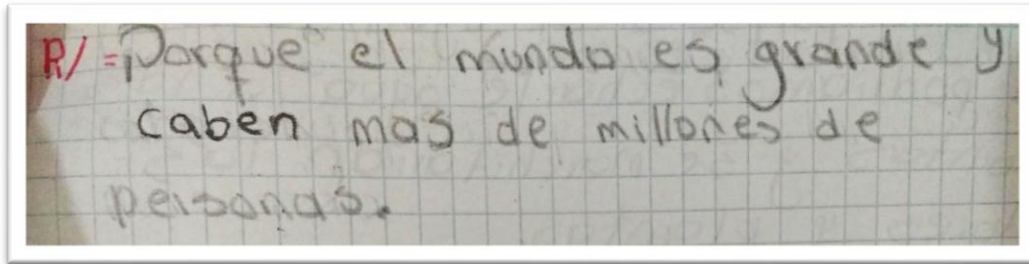 R/= Porque el mundo es grande y
caben mas de millones de
personas.